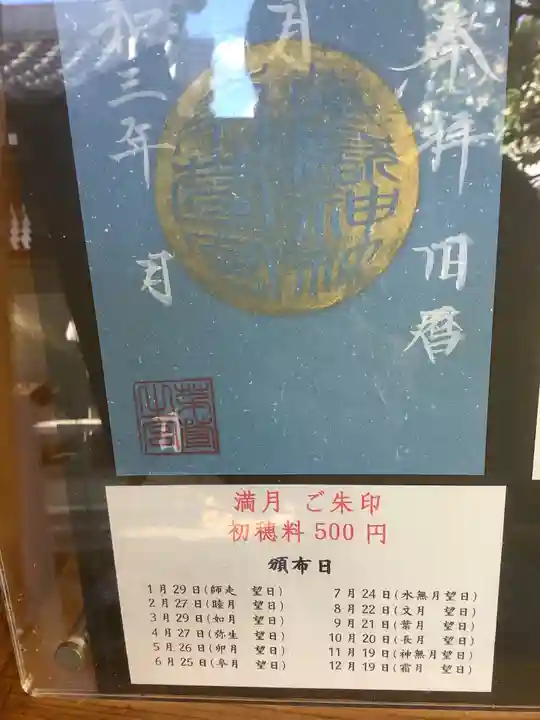 奉拝 旧暦
月
和三年 月
満月 ご朱印
初穂料 500 円
頒布日
1 月 29 日(師走 望日)
2 月 27 日(睦月 望日)
3 月 29 日(如月 望日)
4 月 27 日(弥生 望日)
5 月 26 日(卯月 望日)
6 月 25 日(皐月 望日)
7 月 24 日(水無月望日)
8 月 22 日(文月 望日)
9 月 21 日(葉月 望日)
10 月 20 日(長月 望日)
11 月 19 日(神無月望日)
12 月 19 日(霜月 望日)